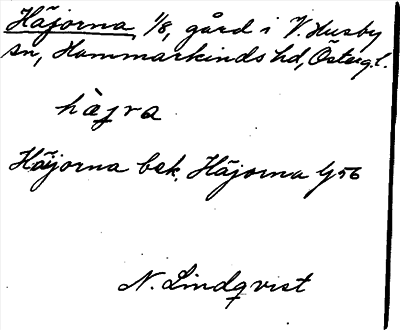 Häjorna 1/8, gård i V. Husby
sn, Hammarkinds hd, Östergtl.
hàjra
Häjorna bek. Häjorna G56
N. Lindqvist